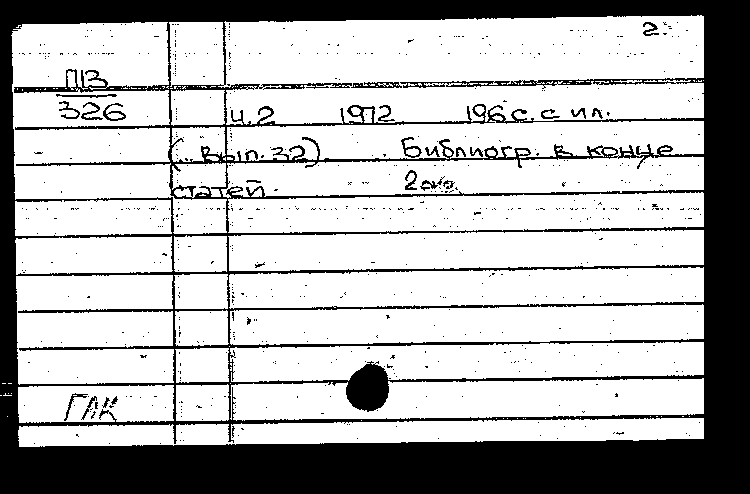 2.
П13
326
ч.2 1972 196 с. с ил.
(.. вып. 32). . Библиогр. в конце
статей. 2 экз.
ГПК